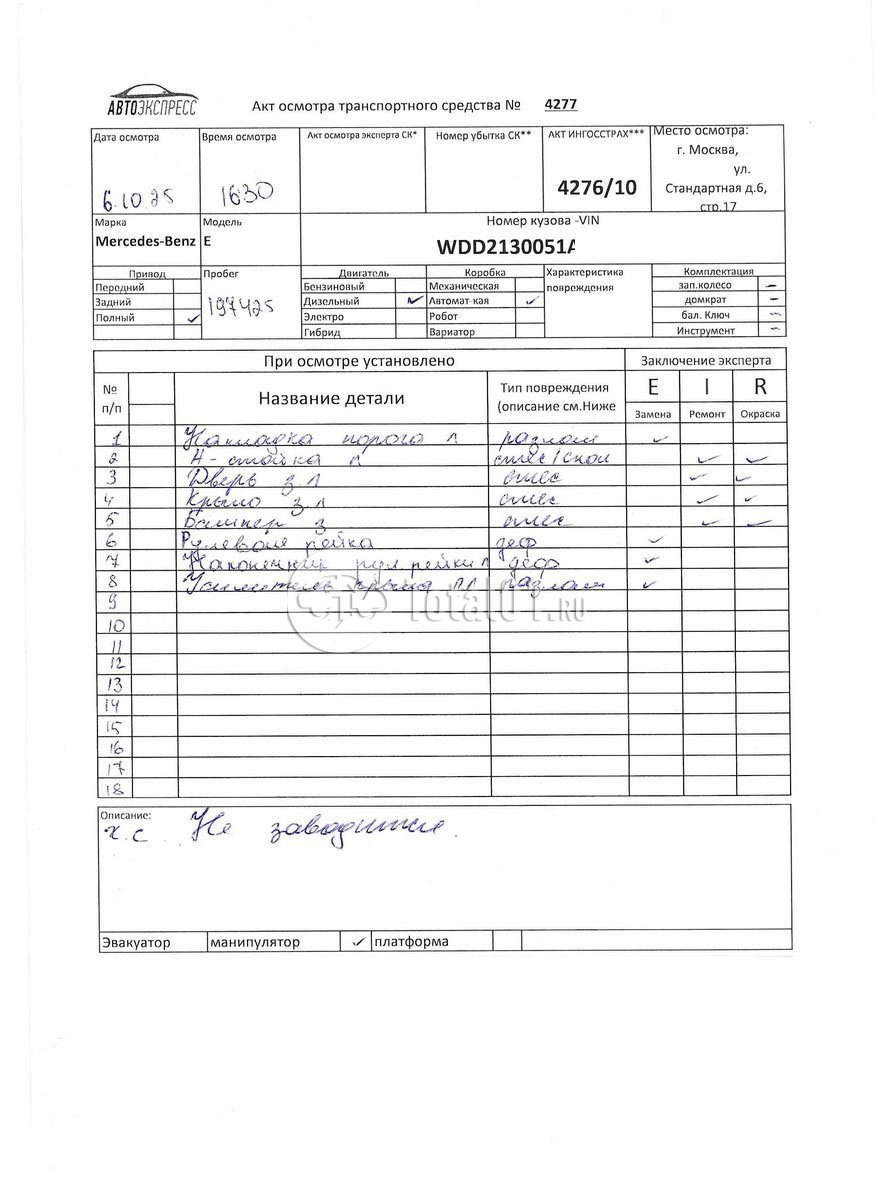 АВТОЭКСПРЕСС
Акт осмотра транспортного средства № 4277
Дата осмотра Время осмотра Акт осмотра эксперта СК* Номер убытка СК** АКТ ИНГОССТРАХ*** Место осмотра:
г. Москва,
ул.
6.10.25 16:30 4276/10 Стандартная д.6,
стр.17
Марка Модель Номер кузова -VIN
Mercedes-Benz E WDD2130051A
Привод Пробег Двигатель Коробка Характеристика повреждения Комплектация
Передний Бензиновый Механическая зап.колесо –
Задний 197425 Дизельный ✓ Автомат-кая ✓ домкрат –
Полный ✓ Электро Робот бал. Ключ –
Гибрид Вариатор Инструмент –
При осмотре установлено Заключение эксперта
№ п/п Название детали Тип повреждения (описание см.Ниже E I R
Замена Ремонт Окраска
1 Накладка порога л разлом ✓
2 А-стойка л смес/скол ✓ ✓
3 Дверь з.л смес ✓ ✓
4 Крыло з.л смес ✓ ✓
5 Бампер з смес ✓ ✓
6 Рулевая рейка деф ✓
7 Наконечник рул рейки л деф ✓
8 Усилитель крыла пл разлом ✓
9
10
11
12
13
14
15
16
17
18
Total01.RU
Описание:
х.с Не заводится.
Эвакуатор манипулятор ✓ платформа